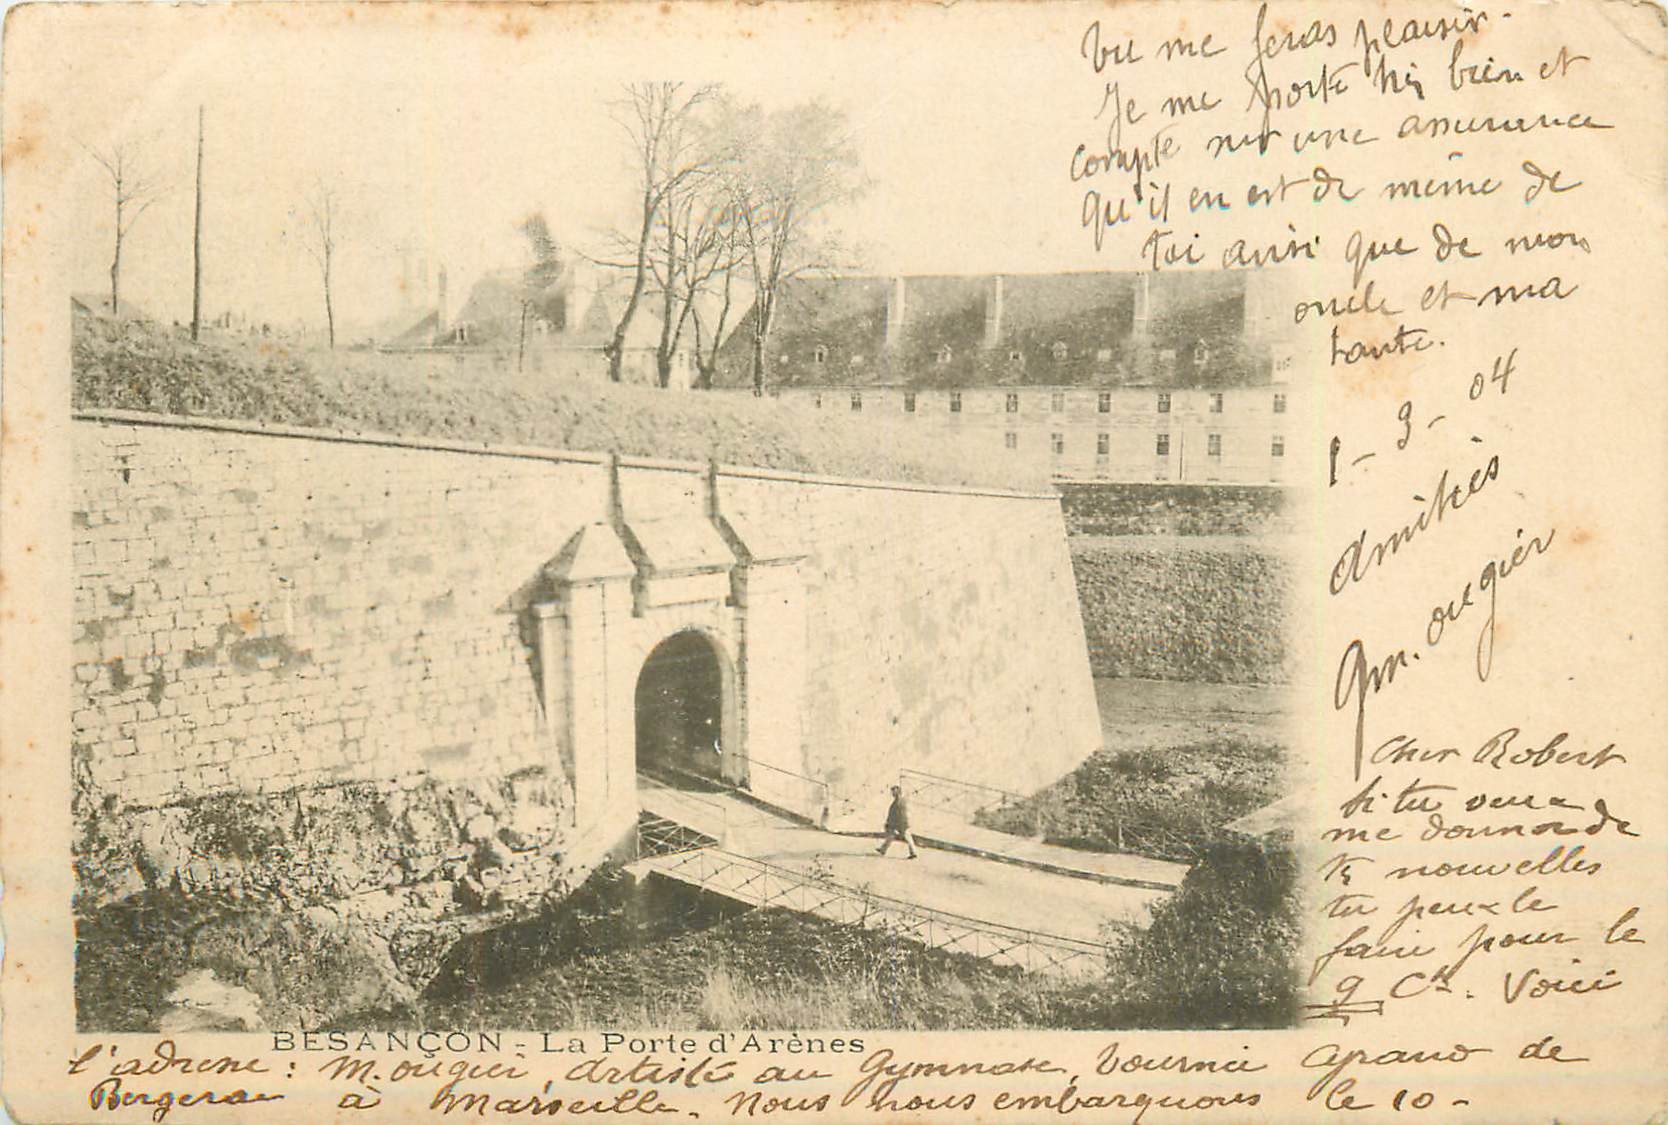 Cher Robert
si tu veux
me donner de
tes nouvelles
tu peux le
faire pour le
9 Ct. Voici
l'adresse : M. ougier, Artiste au Gymnase, Tournée de
Bergerac à Marseille. Nous nous embarquons le 10 -
tu me feras plaisir.
Je me porte très bien et
compte sur une assurance
qu'il en est de même de
toi ainsi que de mon
oncle et ma
tante.
1 - 3 - 04
Amitiés
Gm. ougier
BESANÇON - La Porte d'Arènes